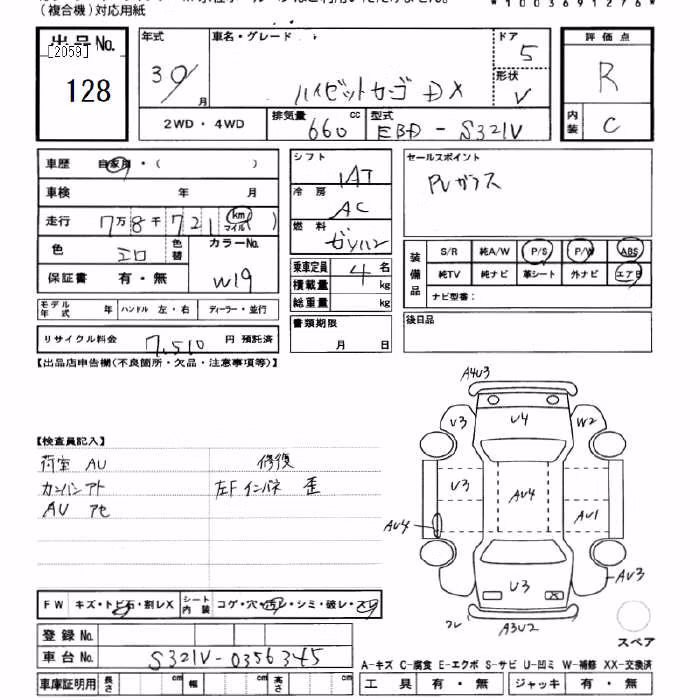 (複合機)対応用紙
*1003691276*
出品No.
[2059]
128
年式
30/
月
車名・グレード
ハイゼットカーゴ DX
ドア
5
形状
V
評価点
R
内装
C
2WD・4WD
排気量
660
cc
型式
EBD-S321V
車歴 自家用・( )
車検 年 月
走行 7万8千721 km マイル )
色
シロ
色替
カラーNo.
W19
保証書 有・無
モデル年式 年 ハンドル 左・右 ディーラー・並行
リサイクル料金 7,510 円 預託済
シフト
IAT
冷房
AC
燃料
ガソリン
乗車定員 4 名
積載量 kg
総重量 kg
書類期限
月 日
セールスポイント
PVガラス
装備品
S/R 純A/W P/S P/W ABS
純TV 純ナビ 革シート 外ナビ エアB
ナビ型番:
後日品
【出品店申告欄(不良箇所・欠品・注意事項等)】
【検査員記入】
荷室 AU
カンバンアト
AU アセ
修復
左Fインパネ 歪
A4U3
U3
U4
W2
U3
AU4
AU4
AU1
AU3
U3
X
フレ
A3U2
スペア
FW キズ・トビ石・割レX シート内装 コゲ・穴・汚レ・シミ・破レ・スレ
登録No.
車台No. S321V-0356345
車庫証明用 長さ cm 幅 cm 高さ cm
A-キズ C-腐食 E-エクボ S-サビ U-凹ミ W-補修 XX-交換済
工具 有・無 ジャッキ 有・無